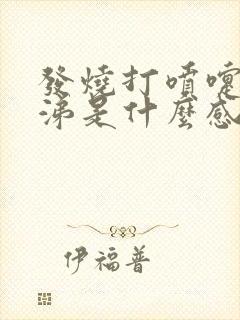 發燒打噴嚏
涕是什麼感
伊福普